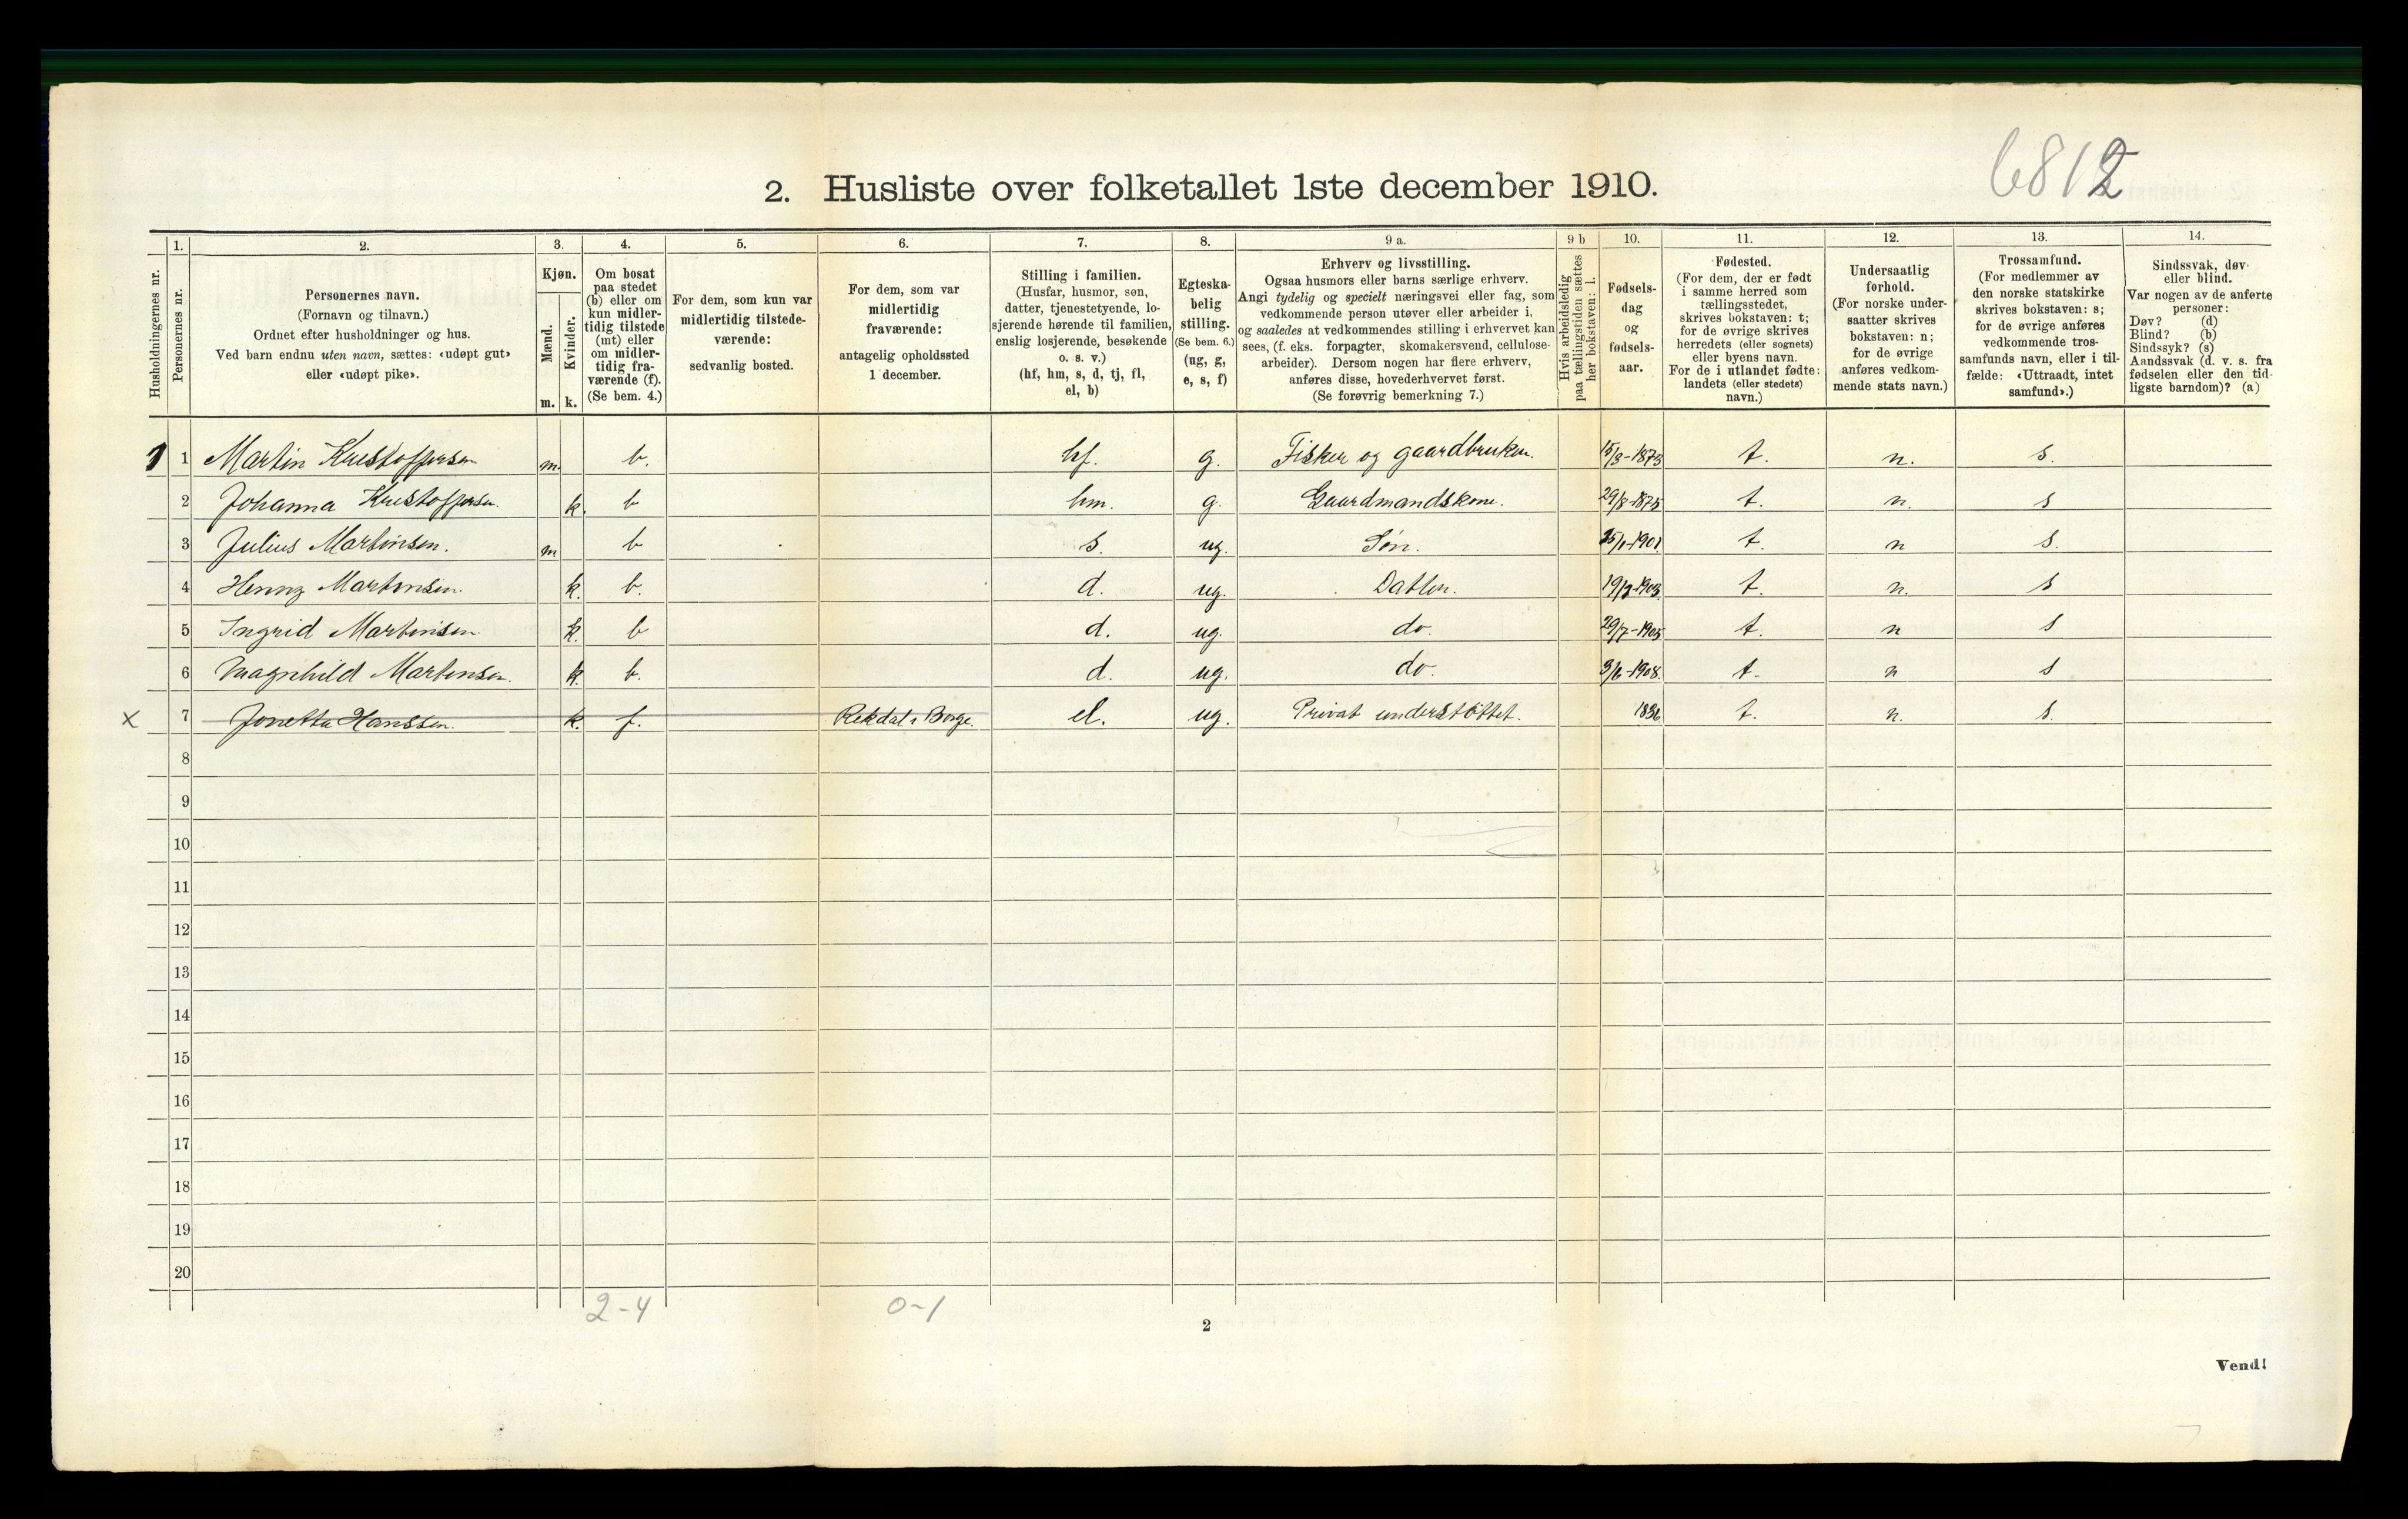 6812
2. Husliste over folketallet 1ste december 1910.
Husholdningernes nr.
1.
Personernes nr.
2.
Personernes navn.
(Fornavn og tilnavn.)
Ordnet efter husholdninger og hus.
Ved barn endnu uten navn, sættes: «udøpt gut»
eller «udøpt pike».
3.
Kjøn.
Mænd.
m.
Kvinder.
k.
4.
Om bosat
paa stedet
(b) eller om
kun midler-
tidig tilstede
(mt) eller
om midler-
tidig fra-
værende (f).
(Se bem. 4.)
5.
For dem, som kun var
midlertidig tilstede-
værende:
sedvanlig bosted.
6.
For dem, som var
midlertidig
fraværende:
antagelig opholdssted
1 december.
7.
Stilling i familien.
(Husfar, husmor, søn,
datter, tjenestetyende, lo-
sjerende hørende til familien,
enslig losjerende, besøkende
o. s. v.)
(hf, hm, s, d, tj, fl,
el, b)
8.
Egteska-
belig
stilling.
(Se bem. 6.)
(ug, g,
e, s, f)
9 a.
Erhverv og livsstilling.
Ogsaa husmors eller barns særlige erhverv.
Angi tydelig og specielt næringsvei eller fag, som
vedkommende person utøver eller arbeider i,
og saaledes at vedkommendes stilling i erhvervet kan
sees, (f. eks. forpagter, skomakersvend, cellulose-
arbeider). Dersom nogen har flere erhverv,
anføres disse, hovederhvervet først.
(Se forøvrig bemerkning 7.)
9 b
Hvis arbeidsledig
paa tællingstiden sættes
her bokstaven: l.
10.
Fødsels-
dag
og
fødsels-
aar.
11.
Fødested.
(For dem, der er født
i samme herred som
tællingsstedet,
skrives bokstaven: t;
for de øvrige skrives
herredets (eller sognets)
eller byens navn.
For de i utlandet fødte:
landets (eller stedets)
navn.)
12.
Undersaatlig
forhold.
(For norske under-
saatter skrives
bokstaven: n;
for de øvrige
anføres vedkom-
mende stats navn.)
13.
Trossamfund.
(For medlemmer av
den norske statskirke
skrives bokstaven: s;
for de øvrige anføres
vedkommende tros-
samfunds navn, eller i til-
fælde: «Uttraadt, intet
samfund».)
14.
Sindssvak, døv
eller blind.
Var nogen av de anførte
personer:
Døv? (d)
Blind? (b)
Sindssyk? (s)
Aandssvak (d. v. s. fra
fødselen eller den tid-
ligste barndom)? (a)
1 1 Martin Kristoffersen m. b. hf. g. Fisker og gaardbruker. 15/3-1873 t. n. s.
2 Johanna Kristoffersen. k. b hm. g. Gaardmandskone. 29/8-1875 t. n. s
3 Julius Martinsen. m b s. ug. Søn. t. n s.
4 Henny Martinsen. k. b. d. ug. Datter. t. n. s
5 Ingrid Martinsen k. b d. ug. do. 29/7-1905 t. n s
6 Magnhild Martinsen. k. b. d. ug. do. 3/6-1908. t. n s
x 7 Jonetta Hanssen. k. f. Rekdal i Borge. el. ug. Privat understöttet. 1836 t. n. s.
8
9
10
11
12
13
14
15
16
17
18
19
20
2-4 0-1
2
Vend!